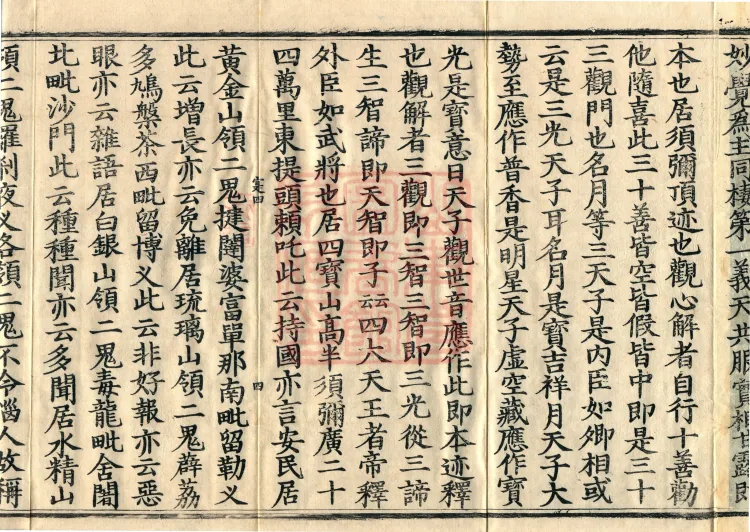 妙覺為主同棲第一義天共服寶相甘露即
本也居須彌頂迹也觀心解者自行十善勸
他隨喜此三十善皆空皆假皆中即是三十
三觀門也名月等三天子是內臣如卿相或
云是三光天子耳名月是寶吉祥月天子大
勢至應作普香是明星天子虛空藏應作寶
光是寶意日天子觀世音應作此即本迹釋
也觀解者三觀即三智三智即三光從三諦
生三智諦即天智即子云云四大天王者帝釋
外臣如武將也居四寶山高半須彌廣二十
四萬里東提頭賴吒此云持國亦言安民居
寔四
四
黃金山領二鬼揵闥婆富單那南毗留勒义
此云增長亦云免離居琉璃山領二鬼薜荔
多鳩槃茶西毗留博义此云非好報亦云惡
眼亦云雜語居白銀山領二鬼毒龍毗舍闍
北毗沙門此云種種聞亦云多聞居水精山
領二鬼羅剎夜义各領二鬼不令惱人故稱